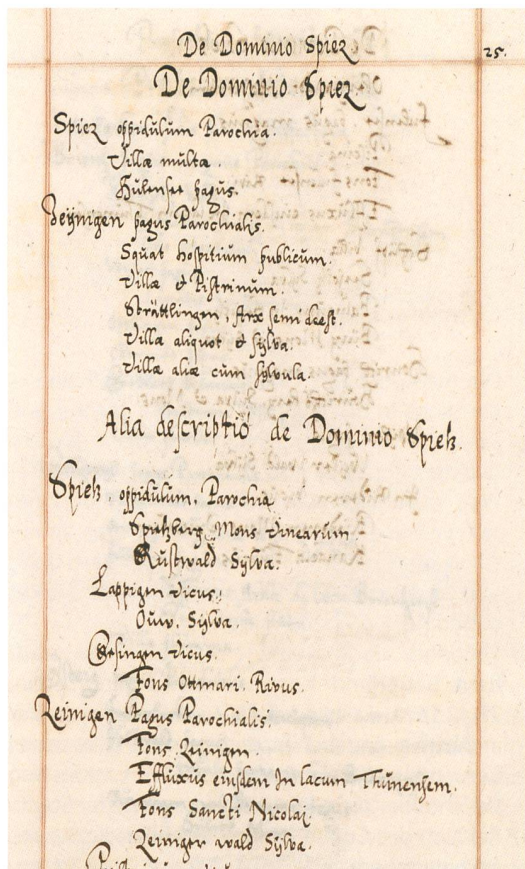 De Dominio Spiez
25.
De Dominio Spiez
Spiez oppidulum Parochia.
Villæ multæ
Hülenset pagus.
Zeÿnigen pagus Parochialis.
Squat hospitium publicum.
Villæ & Pistrinum.
Strättlingen, Arx semi deest.
Villæ aliquot & sÿlva.
Villæ aliæ cum sylvula.
Alia descriptio de Dominio Spietz.
Spietz, oppidulum, Parochia
Spietzberg Mons vinearum
Rustwald Sÿlva.
Lappigen vicus.
Ouw. Sÿlva.
vicus.
Fons Ottmari. Rivus.
Zeinigen Pagus Parochialis.
Fons Zeinigen.
Effluxus eiusdem In lacum Thunensem.
Fons Sancti Nicolai
Zeiniger wald Sÿlva.